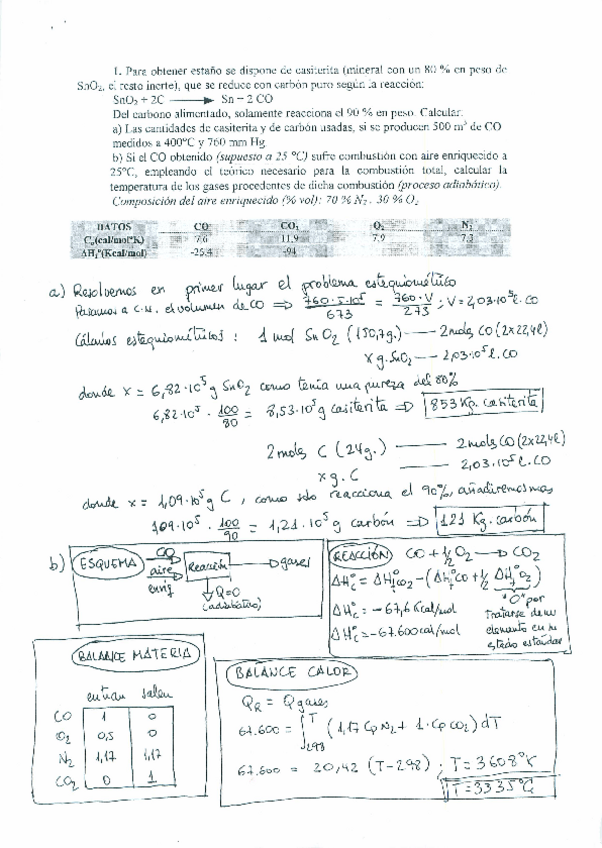 1. Para obtener estaño se dispone de casiterita (mineral con un 80 % en peso de
SnO₂, el resto inerte), que se reduce con carbón puro según la reacción:
SnO₂ + 2C → Sn + 2 CO
Del carbono alimentado, solamente reacciona el 90 % en peso. Calcular:
a) Las cantidades de casiterita y de carbón usadas, si se producen 500 m³ de CO
medidos a 400°C y 760 mm Hg.
b) Si el CO obtenido (supuesto a 25 °C) sufre combustión con aire enriquecido a
25°C, empleando el teórico necesario para la combustión total, calcular la
temperatura de los gases procedentes de dicha combustión (proceso adiabático).
Composición del aire enriquecido (% vol): 70 % N₂. 30 % O₂
DATOS CO CO₂ O₂ N₂
Cp(cal/mol°K) 7,6 11,9 7,9 7,3
ΔHf°(Kcal/mol) -25,4 -94
a) Resolvemos en primer lugar el problema estequiométrico
Pasamos a C.N. el volumen de CO ⇒ 760·5·10⁵/673 = 760·V/273 ; V=2,03·10⁵ l. CO
Cálculos estequiométricos : 1 mol SnO₂ (150,7g.) —— 2 moles CO (2x22,4l)
x g. SnO₂ —— 2,03·10⁵ l. CO
donde x = 6,82·10⁵ g SnO₂ como tenía una pureza del 80%
6,82·10⁵ · 100/80 = 8,53·10⁵ g casiterita ⇒ 853 Kg. casiterita
2 moles C (24g.) —— 2 moles CO (2x22,4l)
x g. C —— 2,03·10⁵ l. CO
donde x = 1,09·10⁵ g C , como solo reacciona el 90%, añadiremos mas
109·10⁵ · 100/90 = 1,21·10⁵ g carbón ⇒ 121 Kg. carbón
b) ESQUEMA
CO
aire
enriq
Reacción
gases
Q=0
(adiabático)
REACCIÓN CO + ½ O₂ → CO₂
ΔHc° = ΔHf°CO₂ - (Δhf°CO + ½ ΔHf°O₂)
ΔHc° = -67,6 Kcal/mol
ΔHc° = -67.600 cal/mol
"0" por
tratarse de un
elemento en su
estado estándar
BALANCE MATERIA
entran salen
CO 1 0
O₂ 0,5 0
N₂ 1,17 1,17
CO₂ 0 1
BALANCE CALOR
QR = Qgases
67.600 = ∫₂₉₈ᵀ (1,17 CpN₂ + 1·CpCO₂) dT
67.600 = 20,42 (T-298) ; T=3608°K
T=3335°C